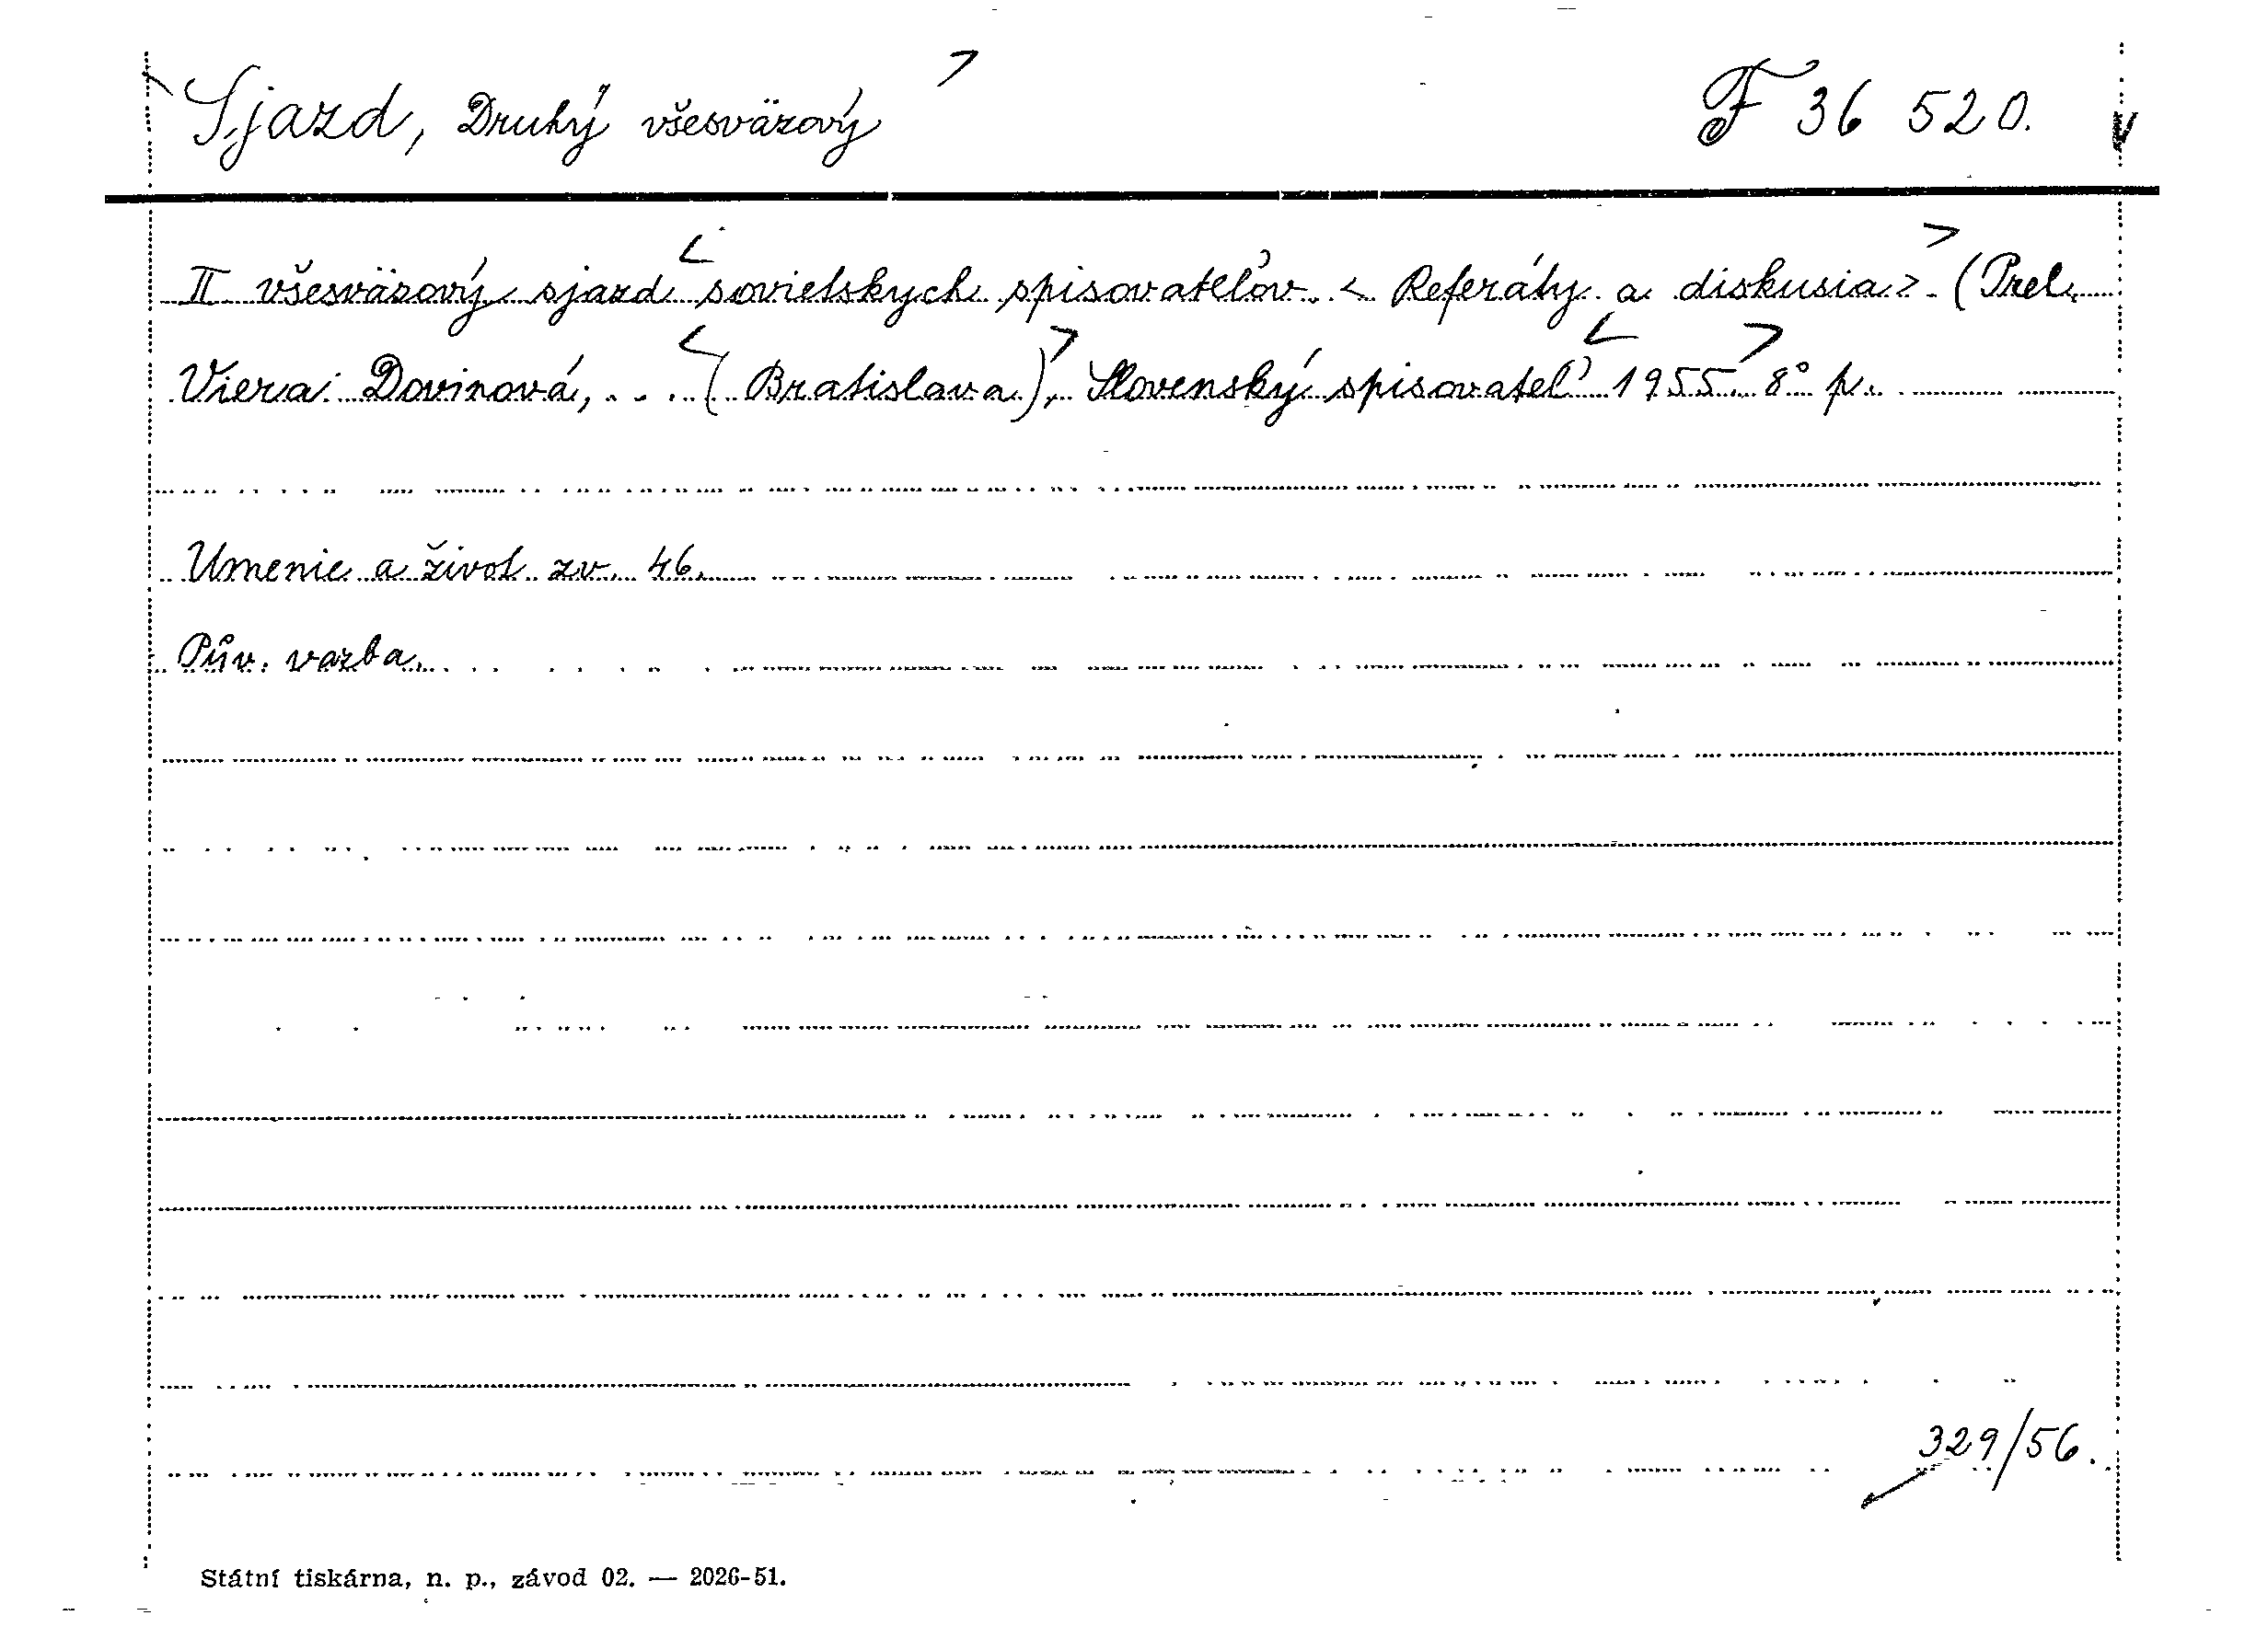 Sjazd, Druhý všesväzový F 36 520.
II všesväzový sjazd sovietskych spisovateľov. < Referáty a diskusia > (Prel.
Viera Dovinová, ... (Bratislava), Slovenský spisovateľ 1955. 8° p.
Umenie a život zv. 46.
Pův. vazba.
329/56.
Státní tiskárna, n. p., závod 02. — 2026-51.